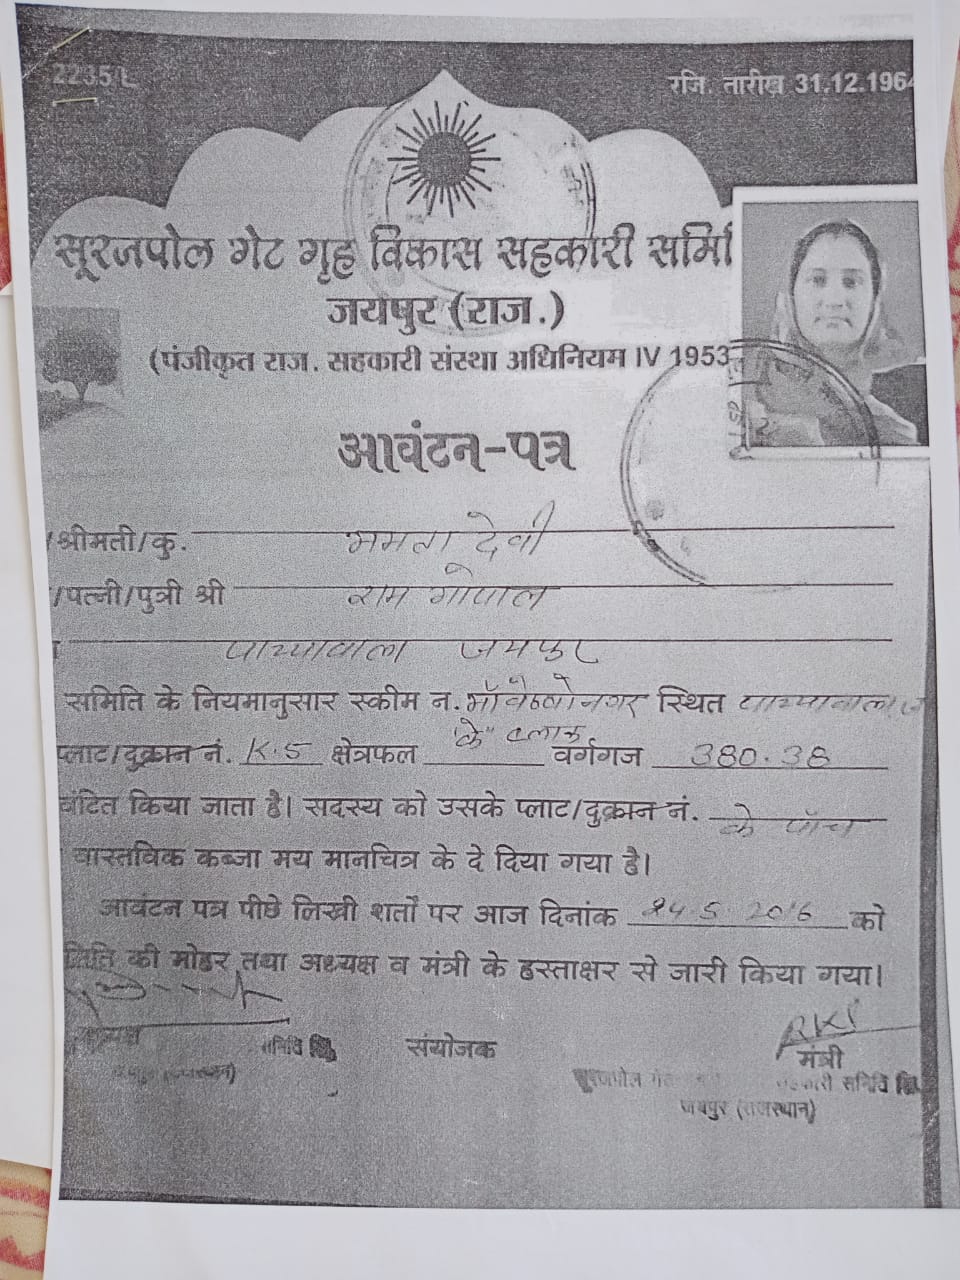 2235/L
रजि. तारीख 31.12.196
सूरजपोल गेट गृह विकास सहकारी समि
जयपुर (राज.)
(पंजीकृत राज. सहकारी संस्था अधिनियम IV 1953
आवंटन-पत्र
/श्रीमती/कु. ममता देवी
/पत्नी/पुत्री श्री राम गोपाल
पाच्यावाला जयपुर
समिति के नियमानुसार स्कीम न. माँ वैष्णो नगर स्थित पाच्यावाला
प्लाट/दुकान नं. K-5 क्षेत्रफल "के" ब्लाक वर्गगज 380.38
वंटित किया जाता है। सदस्य को उसके प्लाट/दुकान नं. के पाँच
वास्तविक कब्जा मय मानचित्र के दे दिया गया है।
आवंटन पत्र पीछे लिखी शर्तों पर आज दिनांक 24.5.2016 को
की मोहर तथा अध्यक्ष व मंत्री के हस्ताक्षर से जारी किया गया।
संयोजक
RKS
मंत्री
सूरजपोल गेट सहकारी समिति लि.
जयपुर (राजस्थान)